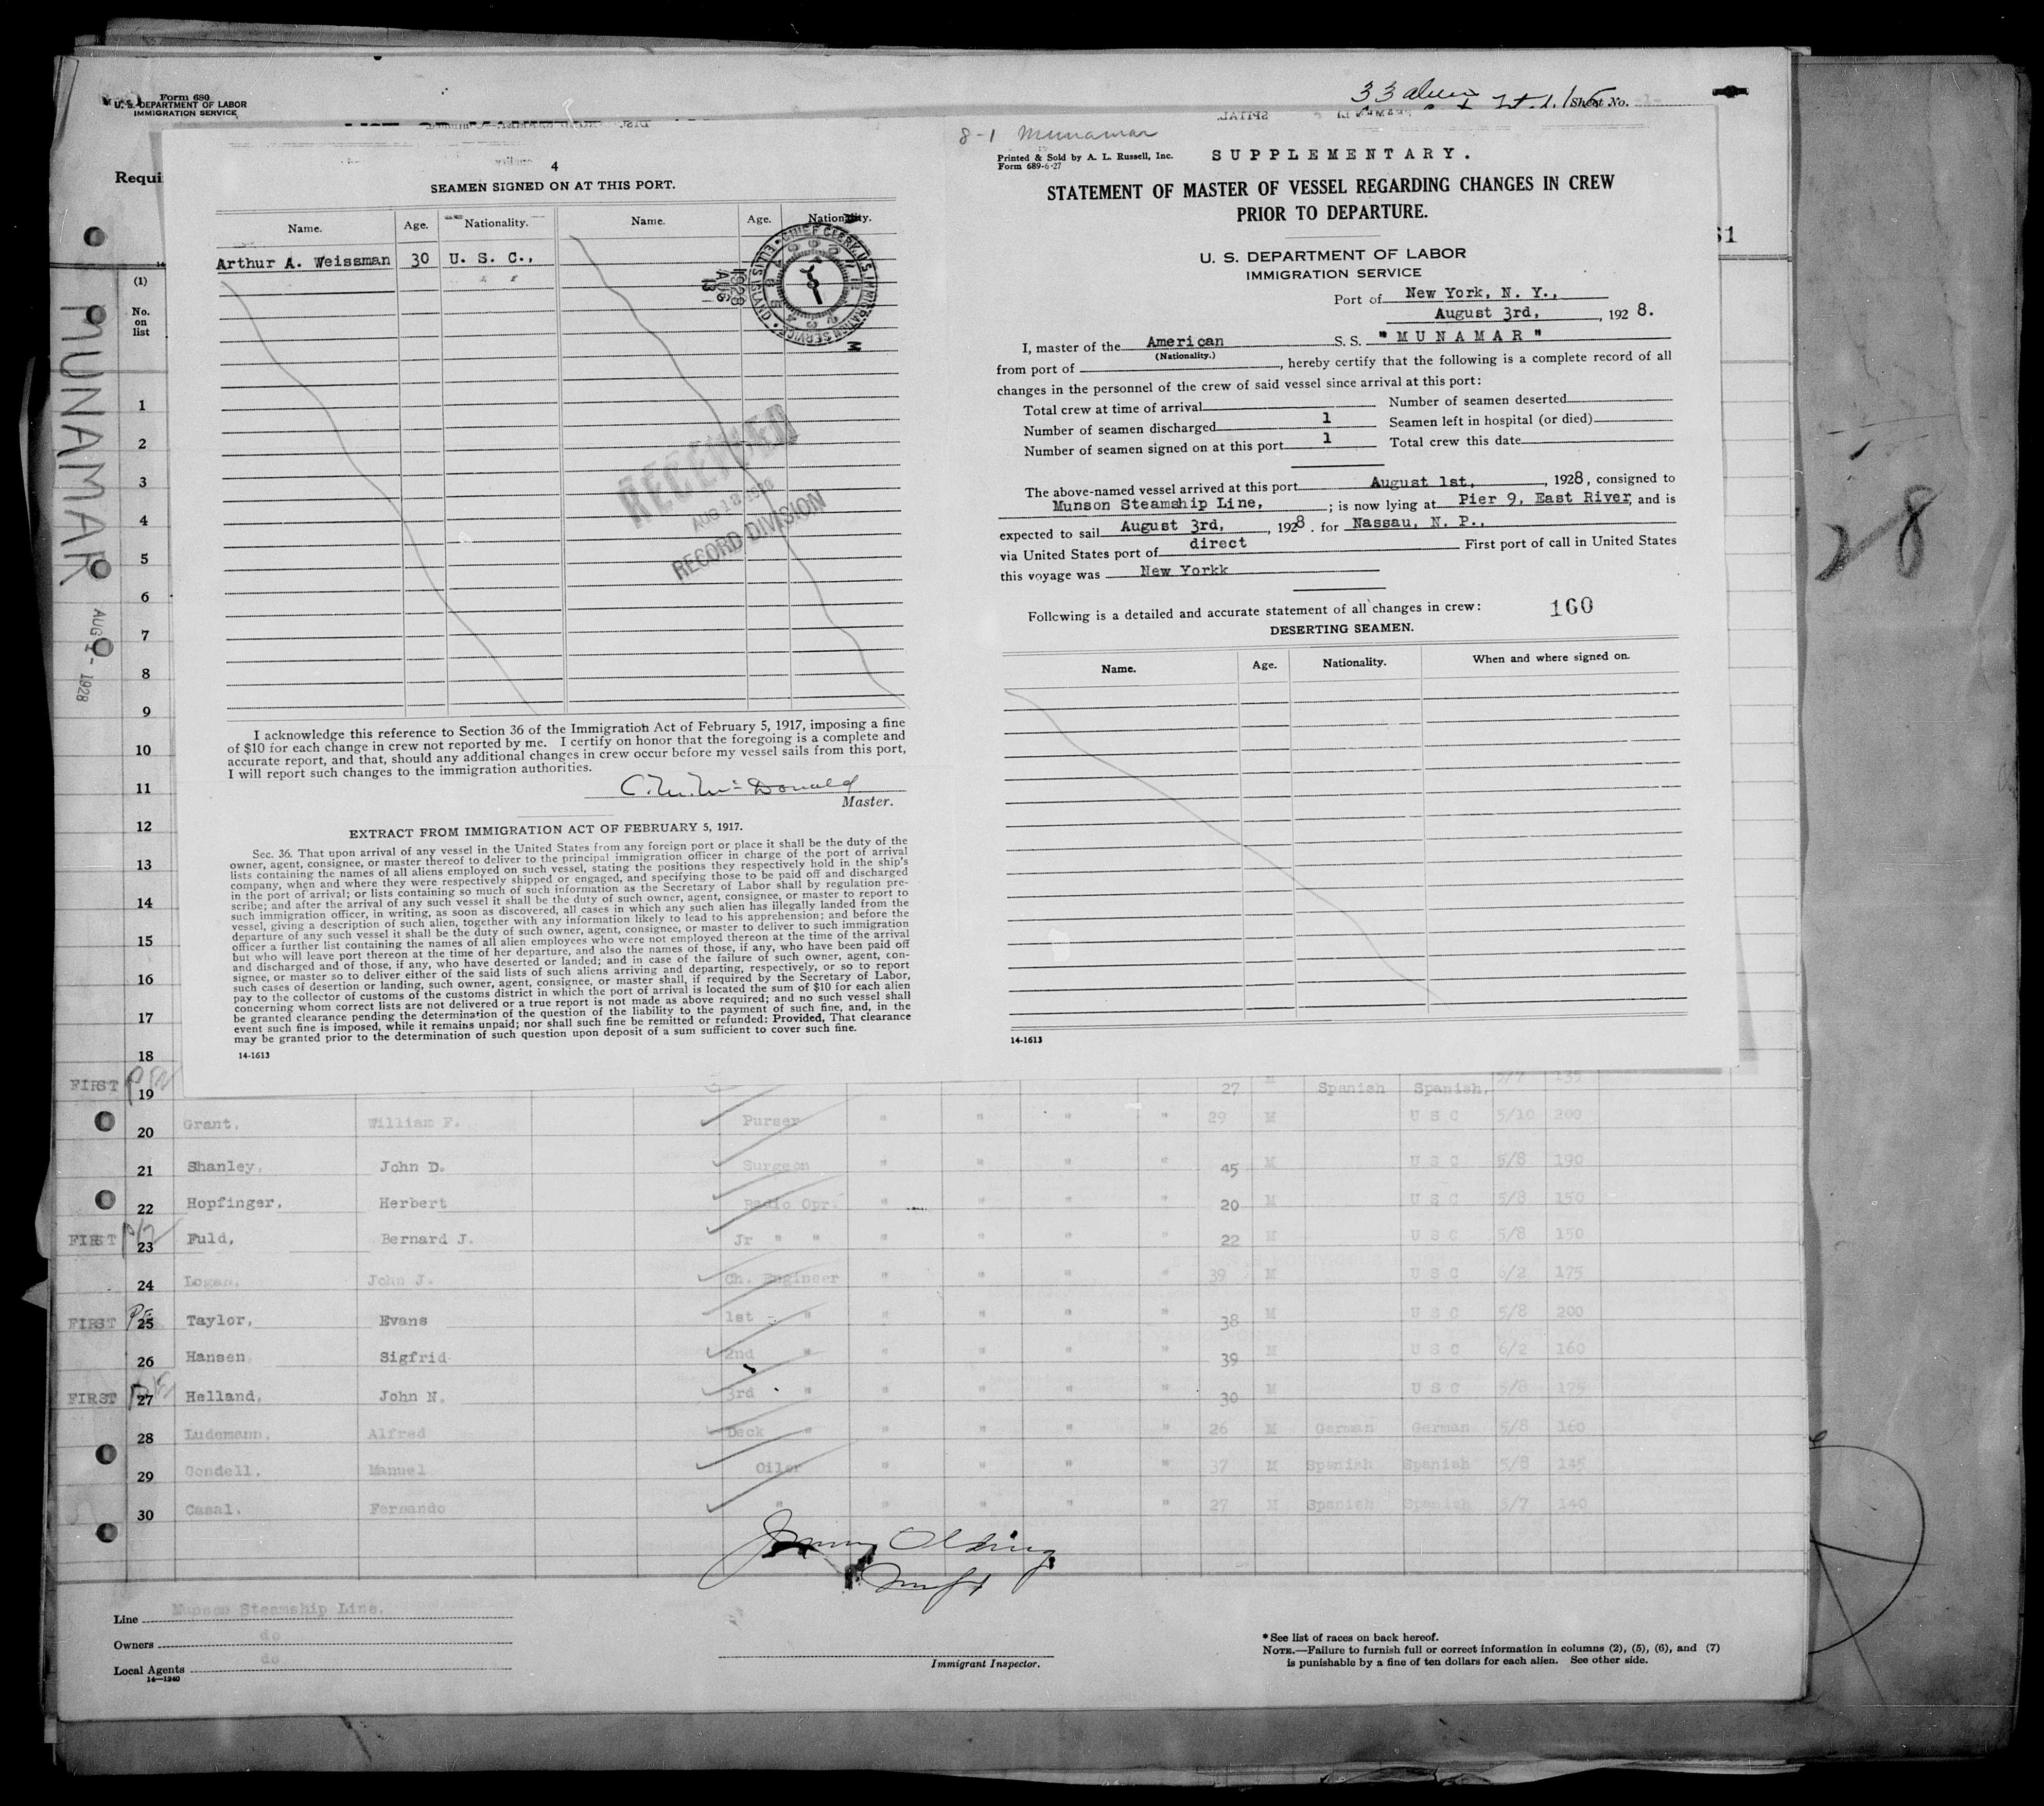 Form 680
U. S. DEPARTMENT OF LABOR
IMMIGRATION SERVICE
Sheet No.
Requi
(1)
No.
on
list
MUNAMAR
1928
4
SEAMEN SIGNED ON AT THIS PORT.
Name. Age. Nationality. Name. Age. Nationality.
Arthur A. Weissman 30 U. S. C.,
CHIEF CLERK, U.S. IMMIGRATION SERVICE ELLIS ISLAND
1928
AUG
13
RECEIVED
AUG 13 1928
RECORD DIVISION
I acknowledge this reference to Section 36 of the Immigration Act of February 5, 1917, imposing a fine
of $10 for each change in crew not reported by me. I certify on honor that the foregoing is a complete and
accurate report, and that, should any additional changes in crew occur before my vessel sails from this port,
I will report such changes to the immigration authorities.
McDonald
Master.
EXTRACT FROM IMMIGRATION ACT OF FEBRUARY 5, 1917.
Sec. 36. That upon arrival of any vessel in the United States from any foreign port or place it shall be the duty of the
owner, agent, consignee, or master thereof to deliver to the principal immigration officer in charge of the port of arrival
lists containing the names of all aliens employed on such vessel, stating the positions they respectively hold in the ship's
company, when and where they were respectively shipped or engaged, and specifying those to be paid off and discharged
in the port of arrival; or lists containing so much of such information as the Secretary of Labor shall by regulation pre-
scribe; and after the arrival of any such vessel it shall be the duty of such owner, agent, consignee, or master to report to
such immigration officer, in writing, as soon as discovered, all cases in which any such alien has illegally landed from the
vessel, giving a description of such alien, together with any information likely to lead to his apprehension; and before the
departure of any such vessel it shall be the duty of such owner, agent, consignee, or master to deliver to such immigration
officer a further list containing the names of all alien employees who were not employed thereon at the time of the arrival
but who will leave port thereon at the time of her departure, and also the names of those, if any, who have been paid off
and discharged and of those, if any, who have deserted or landed; and in case of the failure of such owner, agent, con-
signee, or master so to deliver either of the said lists of such aliens arriving and departing, respectively, or so to report
such cases of desertion or landing, such owner, agent, consignee, or master shall, if required by the Secretary of Labor,
pay to the collector of customs of the customs district in which the port of arrival is located the sum of $10 for each alien
concerning whom correct lists are not delivered or a true report is not made as above required; and no such vessel shall
be granted clearance pending the determination of the question of the liability to the payment of such fine, and, in the
event such fine is imposed, while it remains unpaid; nor shall such fine be remitted or refunded: Provided, That clearance
may be granted prior to the determination of such question upon deposit of a sum sufficient to cover such fine.
14-1613
8-1 Munamar
Printed & Sold by A. L. Russell, Inc.
Form 689-6-27
SUPPLEMENTARY.
STATEMENT OF MASTER OF VESSEL REGARDING CHANGES IN CREW
PRIOR TO DEPARTURE.
U. S. DEPARTMENT OF LABOR
IMMIGRATION SERVICE
Port of New York, N. Y.,
August 3rd, , 192 8.
I, master of the American S. S. "MUNAMAR"
(Nationality.)
from port of , hereby certify that the following is a complete record of all
changes in the personnel of the crew of said vessel since arrival at this port:
Total crew at time of arrival Number of seamen deserted
Number of seamen discharged 1 Seamen left in hospital (or died)
Number of seamen signed on at this port 1 Total crew this date
The above-named vessel arrived at this port August 1st, , 1928, consigned to
Munson Steamship Line, ; is now lying at Pier 9, East River, and is
expected to sail August 3rd, , 1928. for Nassau, N. P.,
via United States port of direct First port of call in United States
this voyage was New Yorkk
Following is a detailed and accurate statement of all changes in crew: 160
DESERTING SEAMEN.
Name. Age. Nationality. When and where signed on.
14-1613
28
1
2
3
4
5
6
7
8
9
10
11
12
13
14
15
16
17
18
FIRST 19 27 M Spanish Spanish, 5/7 135
20 Grant, William F. Purser " " " " 29 M U S C 5/10 200
21 Shanley, John D. Surgeon " " " " 45 M U S C 5/8 190
22 Hopfinger, Herbert Radio Opr. " " " " 20 M U S C 5/8 150
FIRST 23 Fuld, Bernard J. Jr " " " " " " 22 M U S C 5/8 150
24 Logan, John J. Ch. Engineer " " " " 39 M U S C 6/2 175
FIRST 25 Taylor, Evans 1st " " " " " 38 M U S C 5/8 200
26 Hansen Sigfrid 2nd " " " " " 39 M U S C 6/2 160
FIRST 27 Helland, John N. 3rd " " " " " 30 M U S C 5/8 175
28 Ludemann, Alfred Deck " " " " " 26 M German German 5/8 160
29 Gondell, Manuel Oiler " " " " 37 M Spanish Spanish 5/8 145
30 Casal, Fernando " " " " " 27 M Spanish Spanish 5/7 140
Line Munson Steamship Line,
Owners do
Local Agents do
14—1240
Immigrant Inspector.
*See list of races on back hereof.
NOTE.—Failure to furnish full or correct information in columns (2), (5), (6), and (7)
is punishable by a fine of ten dollars for each alien. See other side.